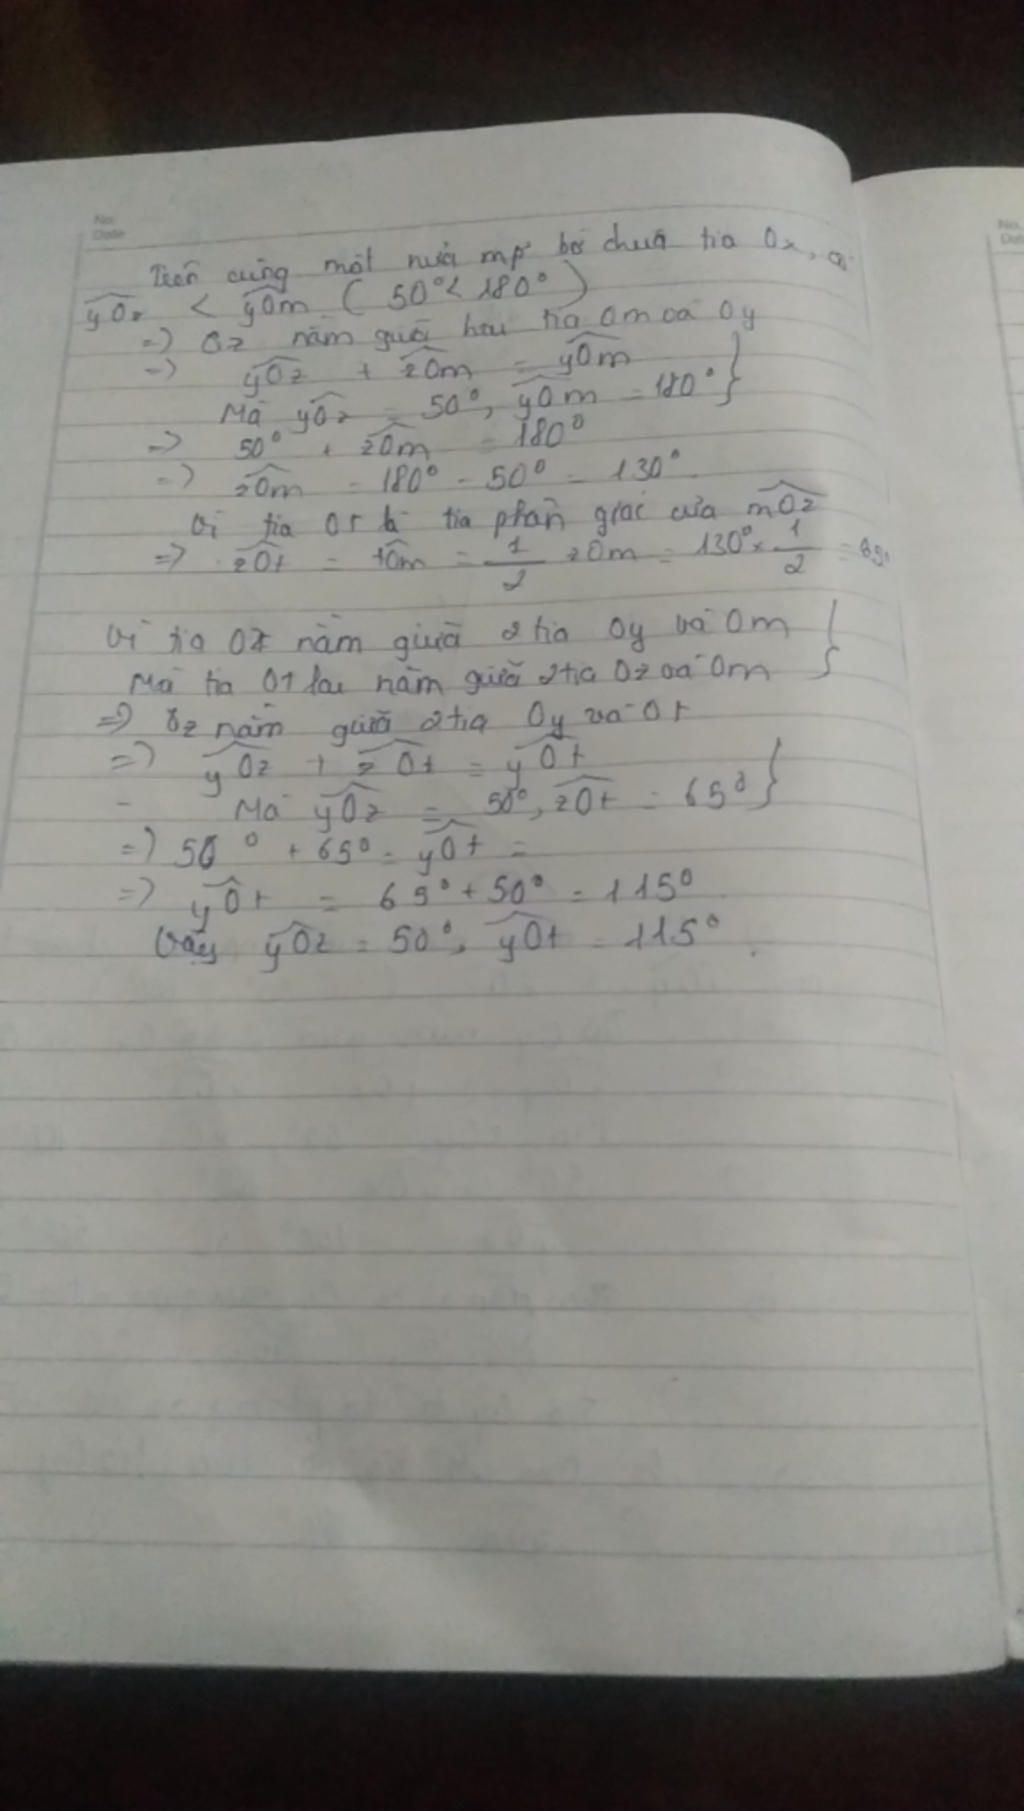 No.
Date
Trên cùng một nửa mp bờ chứa tia Ox, có
yOz < yOm ( 50° < 180° )
=) Oz nằm giữa hai tia Om và Oy
=) yOz + zOm = yOm }
Mà yOz = 50°, yOm = 180°
=) 50° + zOm = 180°
=) zOm = 180° - 50° = 130°
Vì tia Ot là tia phân giác của mOz
=) zOt = tOm = 1/2 zOm = 130° x 1/2 = 65°
Vì tia Oz nằm giữa 2 tia Oy và Om }
Mà tia Ot lại nằm giữa 2 tia Oz và Om
=) Oz nằm giữa 2 tia Oy và Ot
=) yOz + zOt = yOt }
- Mà yOz = 50°, zOt = 65°
=) 50° + 65° = yOt =
=) yOt = 65° + 50° = 115°
Vậy yOz = 50°, yOt = 115°.
No.